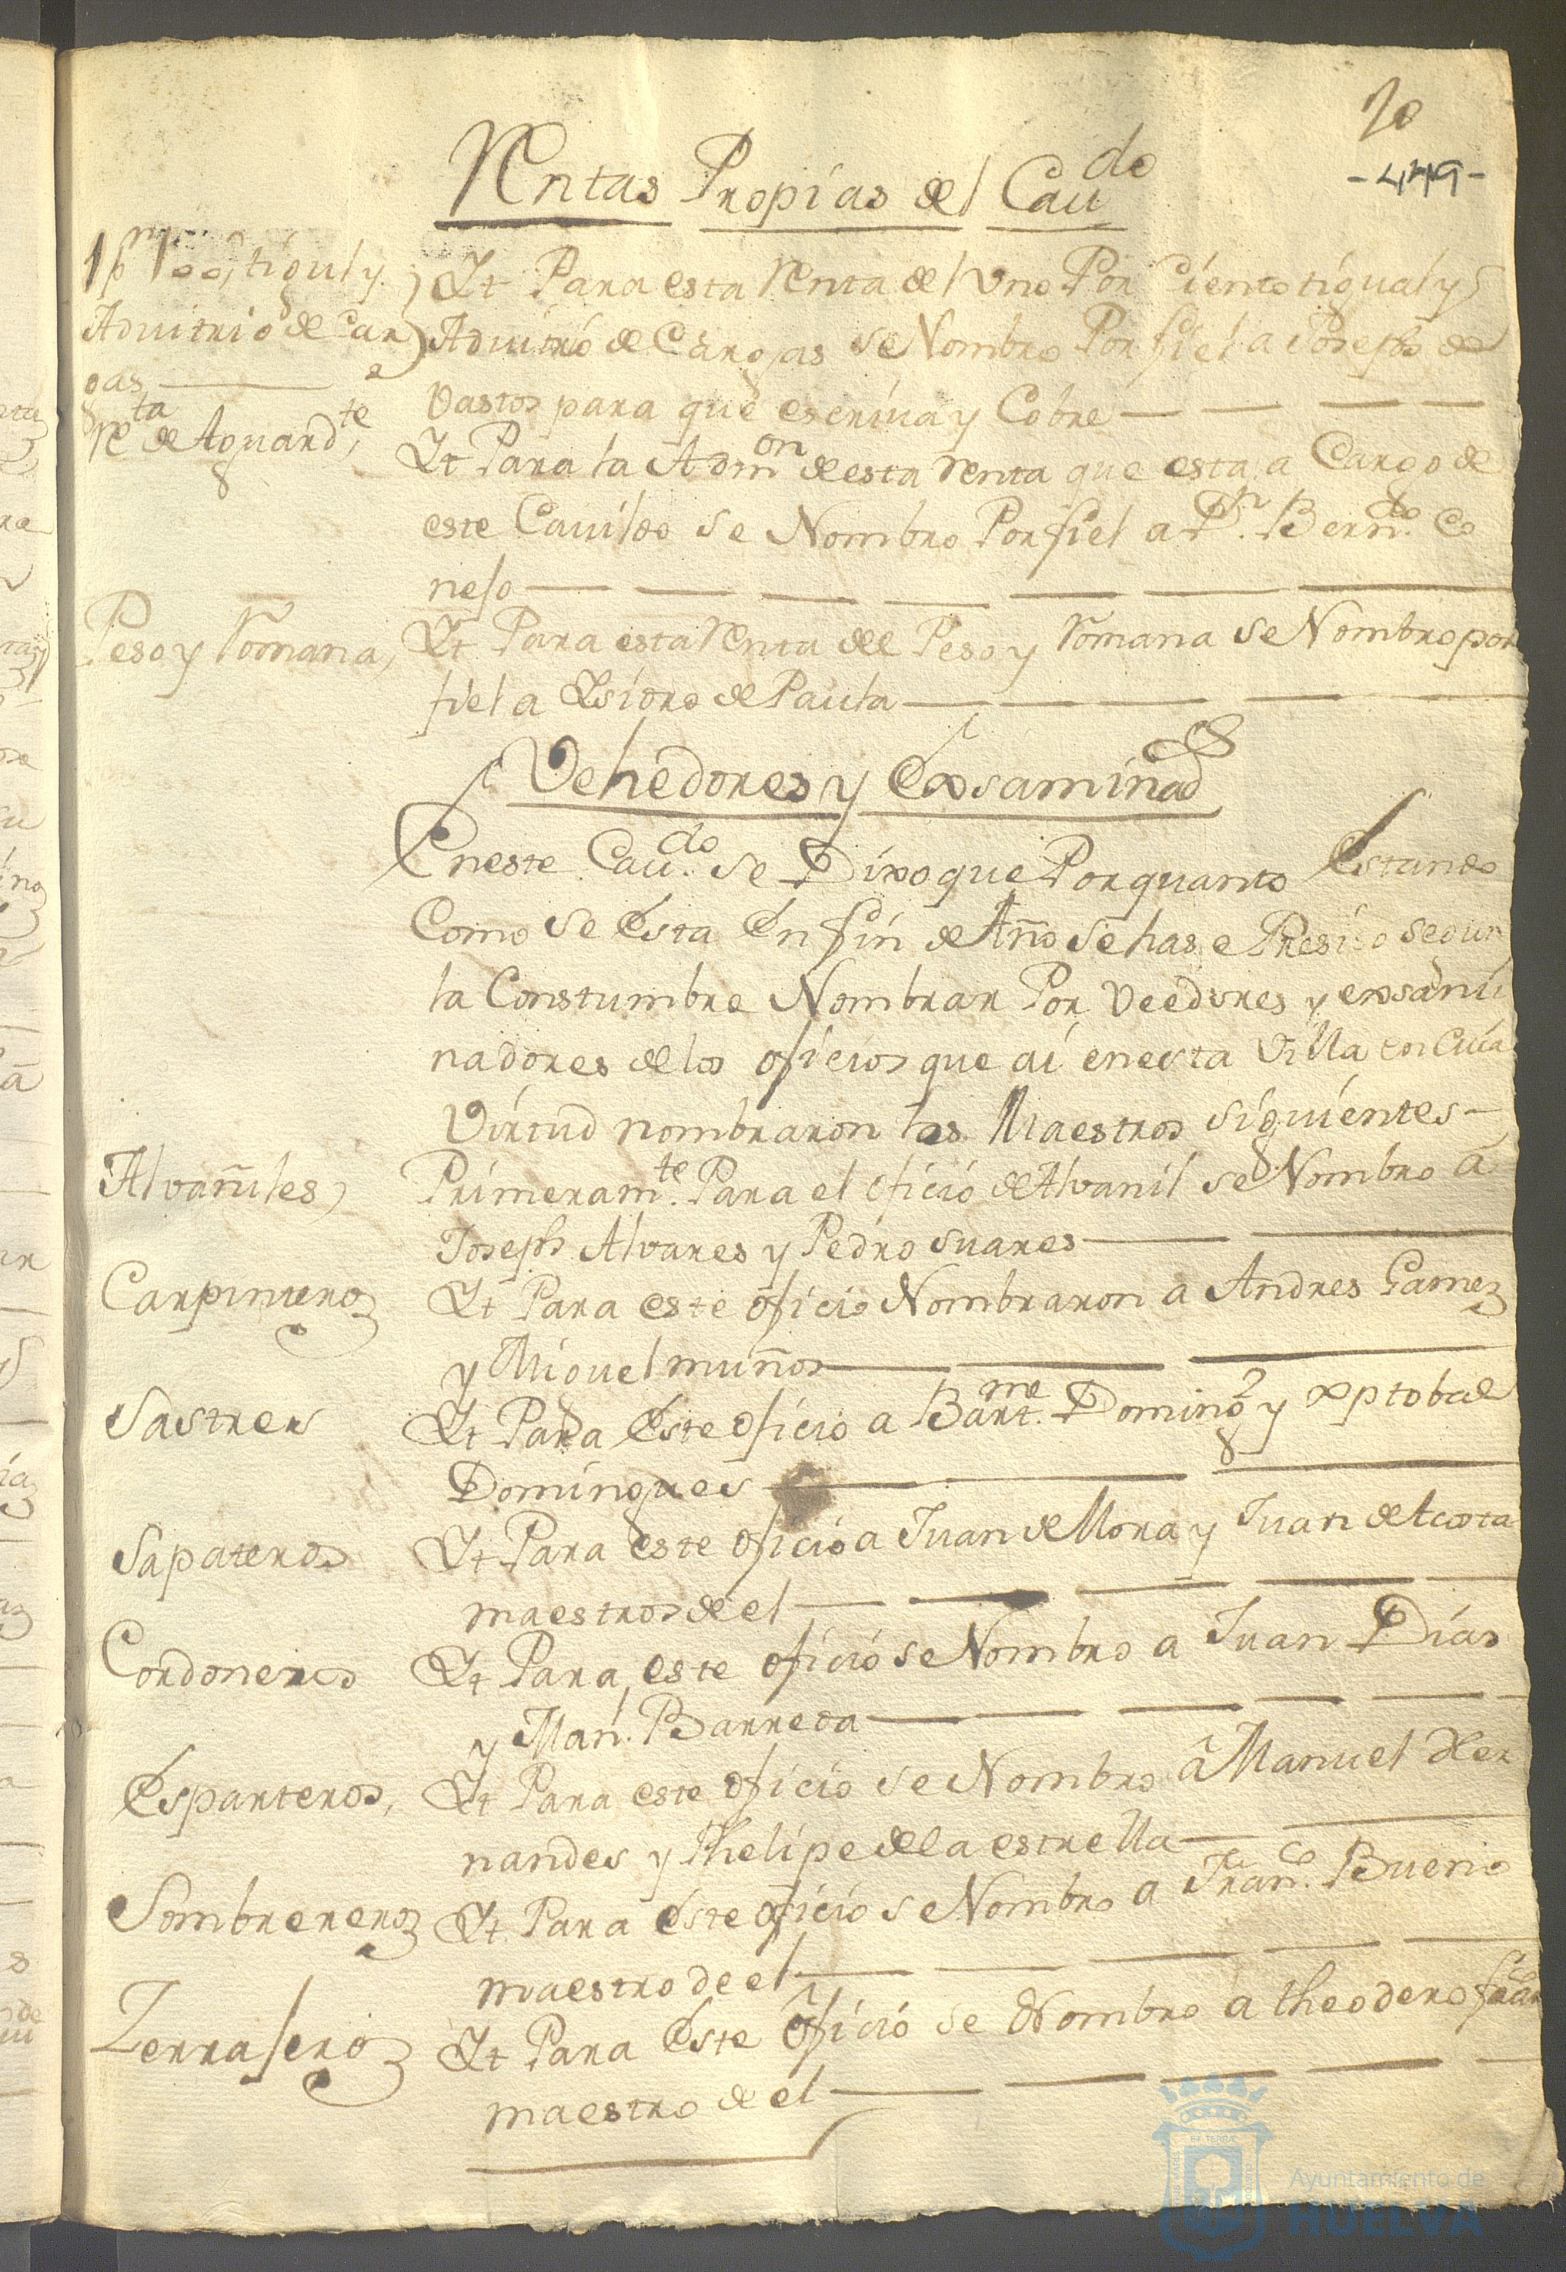 70
-449-
Rentas Propias del Cau.do
1 p.r 100, tigul y
Advitrio de Car
gas
Yt Para esta Renta del Uno Por Ciento tigual y
Advitrio de Cargas se Nombro Por fiel a Joseph de
Vastos para que escriva y Cobre
R.ta de Aguard.te,
Yt Para la Adm.on de esta Renta que esta a Cargo de
este Cavildo se Nombro Por fiel a D.n Bern.do Co
neso
Peso y Romana,
Yt Para esta Renta del Peso y Romana se Nombro por
fiel a Ysidro de Paula
Vehedores y Exsaminad.es
En este Cau.do se Dixo que Por quanto Estando
Como se Esta En fin de Año se hase Presiso segun
la Constumbre Nombrar Por Veedores y exsami
nadores de los oficios que ai en esta Villa en Cuia
Virtud nombraron los Maestros siguientes
Alvañiles,
Primeram.te Para el oficio de Alvanil se Nombro a
Joseph Alvares y Pedro suares
Carpinteros
Yt Para este oficio Nombraron a Andres Gamez
y Miguel muños
Sastres
Yt Para Este oficio a Bart.me Doming.z y xptobal
Domingues
Sapateros
Yt Para este oficio a Juan de Mora y Juan de Acosta
maestros de el
Cordoneros
Yt Para este oficio se Nombro a Juan Dias
y Man.l Barreda
Esparteros,
Yt Para este oficio se Nombro a Manuel Her
nandes y Phelipe de la estrella
Sombrereros
Yt Para este oficio se Nombro a Fran.co Bueno
maestro de el
Terraseros
Yt Para Este oficio se Nombro a theodero
maestro de el
Ayuntamiento de
HUELVA